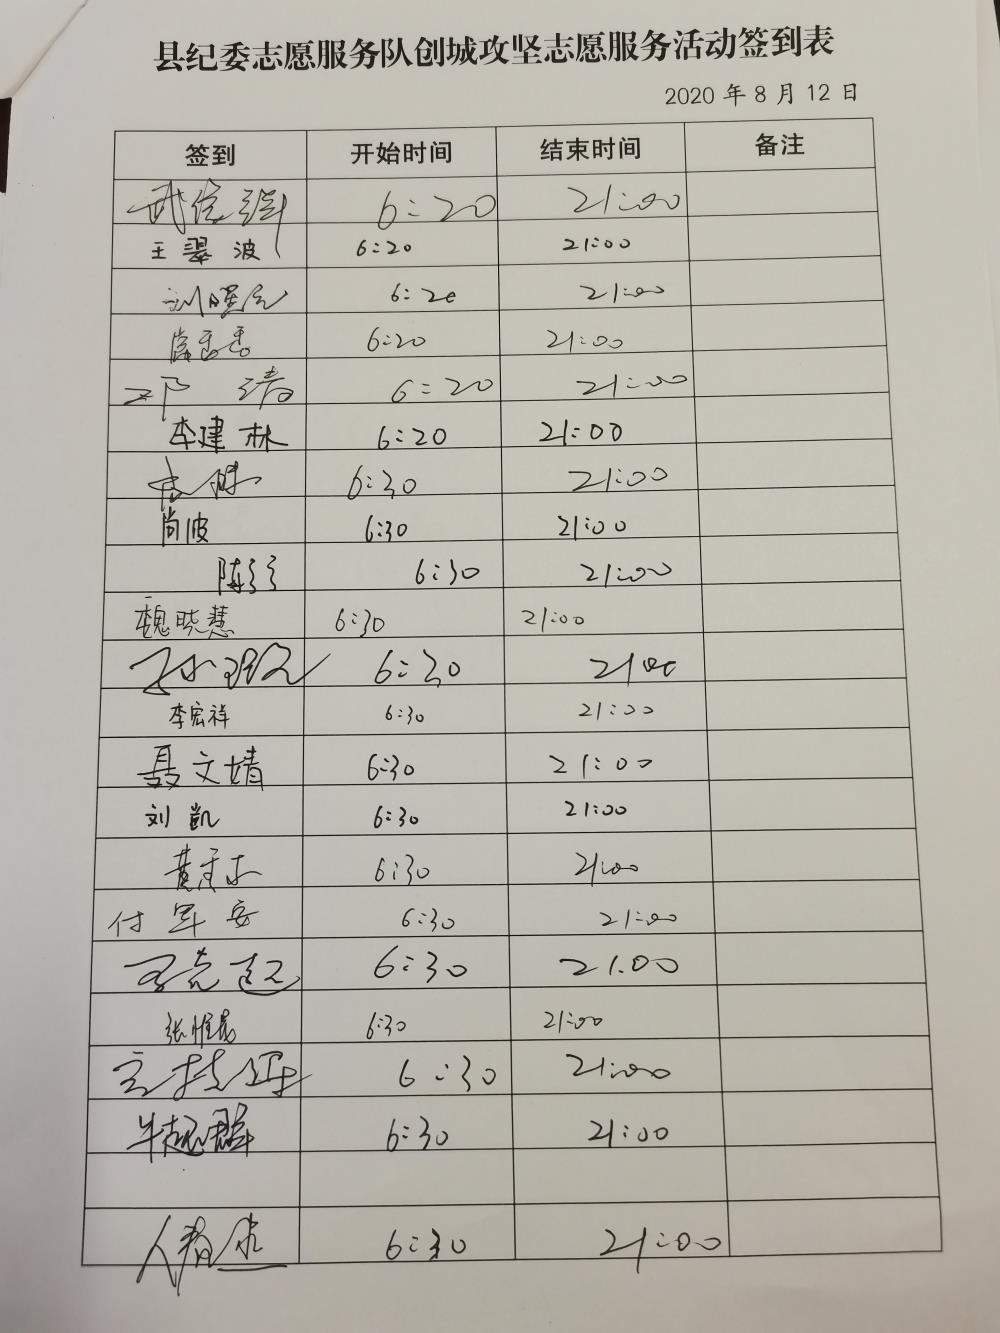 县纪委志愿服务队创城攻坚志愿服务活动签到表
2020 年 8 月 12 日
签到 开始时间 结束时间 备注
武信强 6:20 21:00
王翠波 6:20 21:00
6:20 21:00
6:20 21:00
邓靖 6:20 21:00
李建林 6:20 21:00
6:30 21:00
尚波 6:30 21:00
陈 6:30 21:00
魏晓慧 6:30 21:00
6:30 21:00
李宏祥 6:30 21:00
聂文婧 6:30 21:00
刘凯 6:30 21:00
6:30 21:00
付军安 6:30 21:00
6:30 21.00
6:30 21:00
6:30 21:00
牛超群 6:30 21:00
6:30 21:00